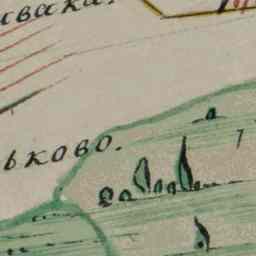 сваха.
ьково.